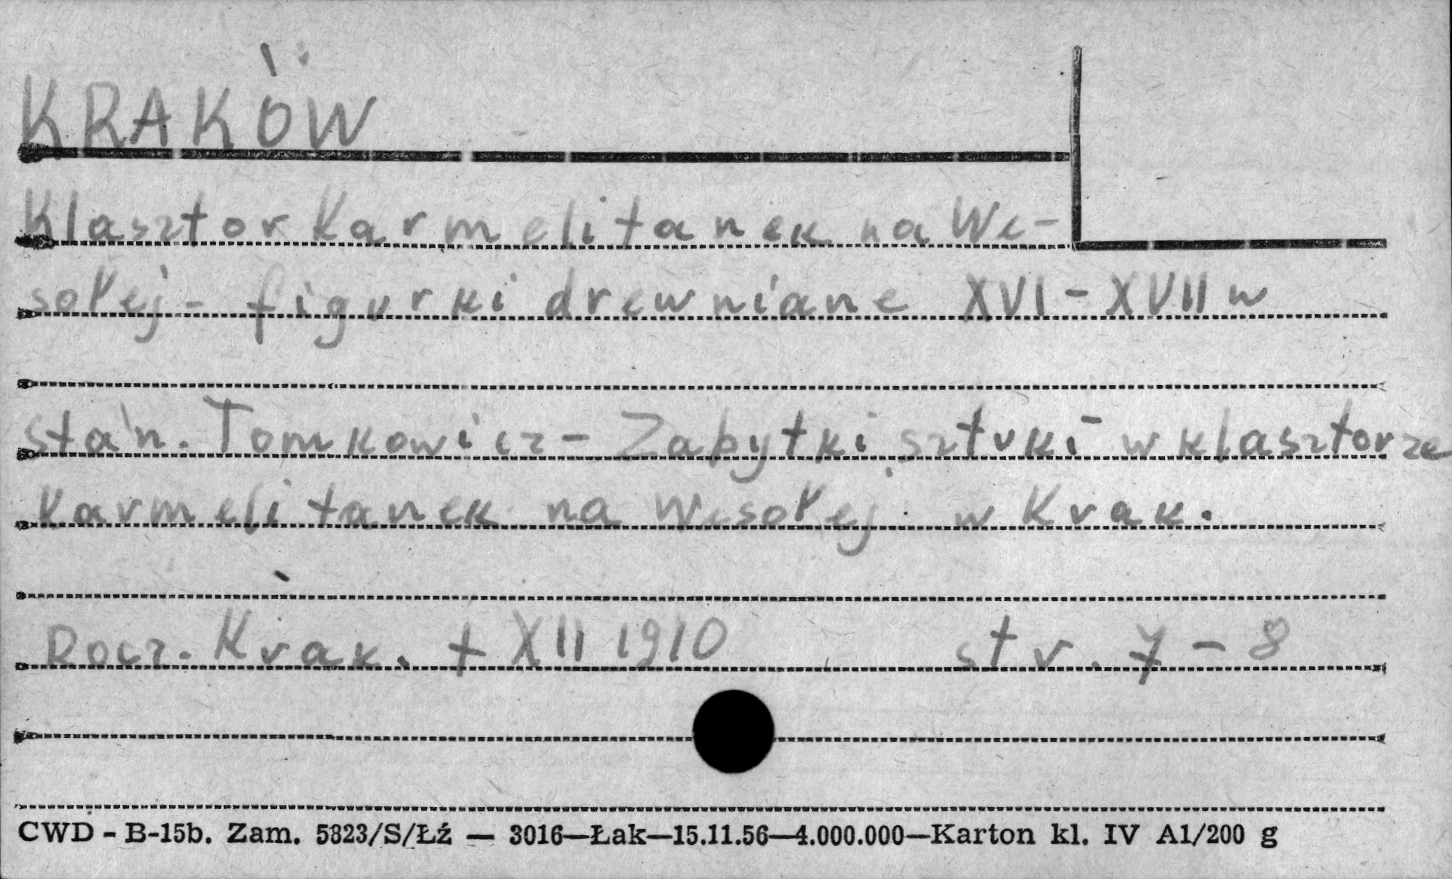 KRAKÓW
Klasztor Karmelitanek na We-
sołej - figurki drewniane XVI - XVII w
Stan. Tomkowicz - Zabytki sztuki w klasztorze
Karmelitanek na Wesołej w Krak.
Rocz. Krak. t XII 1910 str. 7 - 8
CWD - B-15b. Zam. 5823/S/Łź — 3016—Łak—15.11.56—4.000.000—Karton kl. IV A1/200 g